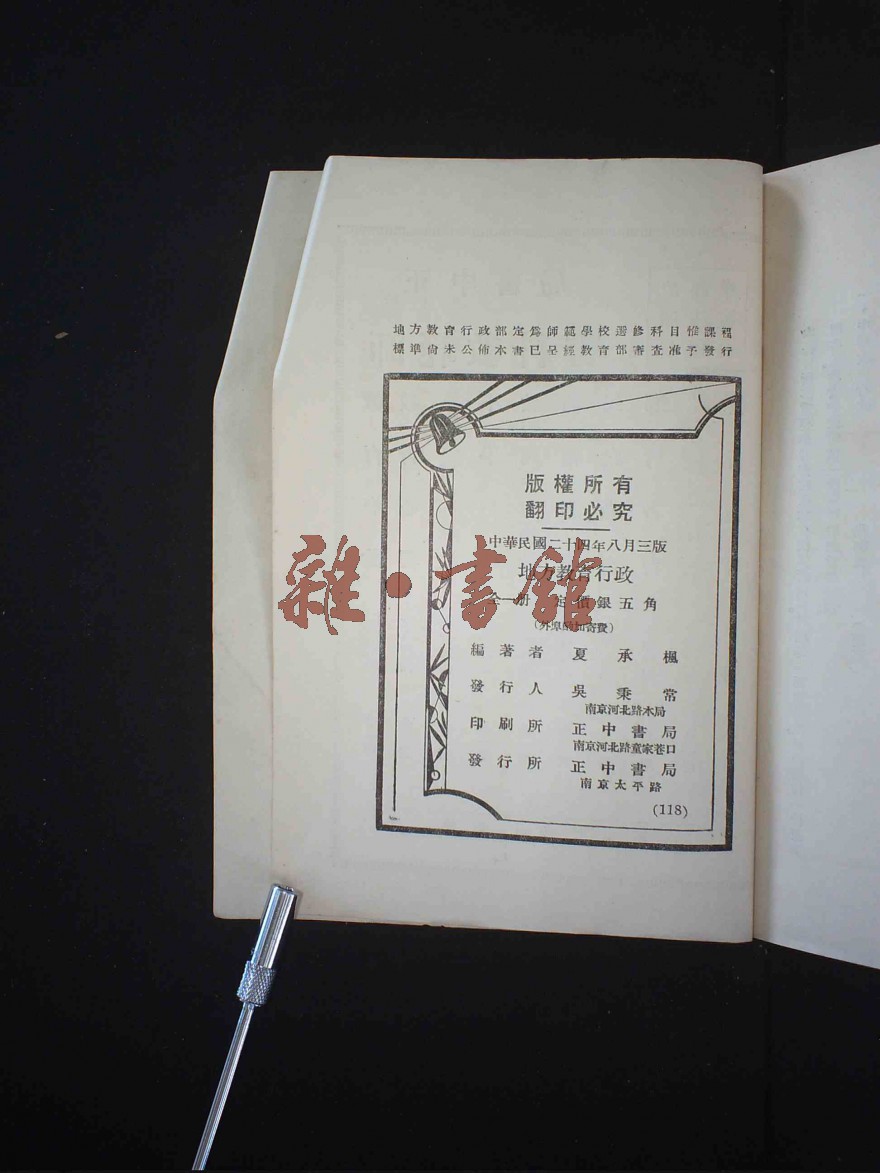 地方教育行政部定爲師範學校選修科目惟課程
標準尙未公佈本書已呈經教育部審查准予發行
版權所有
翻印必究
中華民國二十四年八月三版
地方教育行政
全一冊 定價銀五角
(外埠酌加寄費)
編著者 夏承楓
發行人 吳秉常
南京河北路本局
印刷所 正中書局
南京河北路童家巷口
發行所 正中書局
南京太平路
(118)
雜·書館